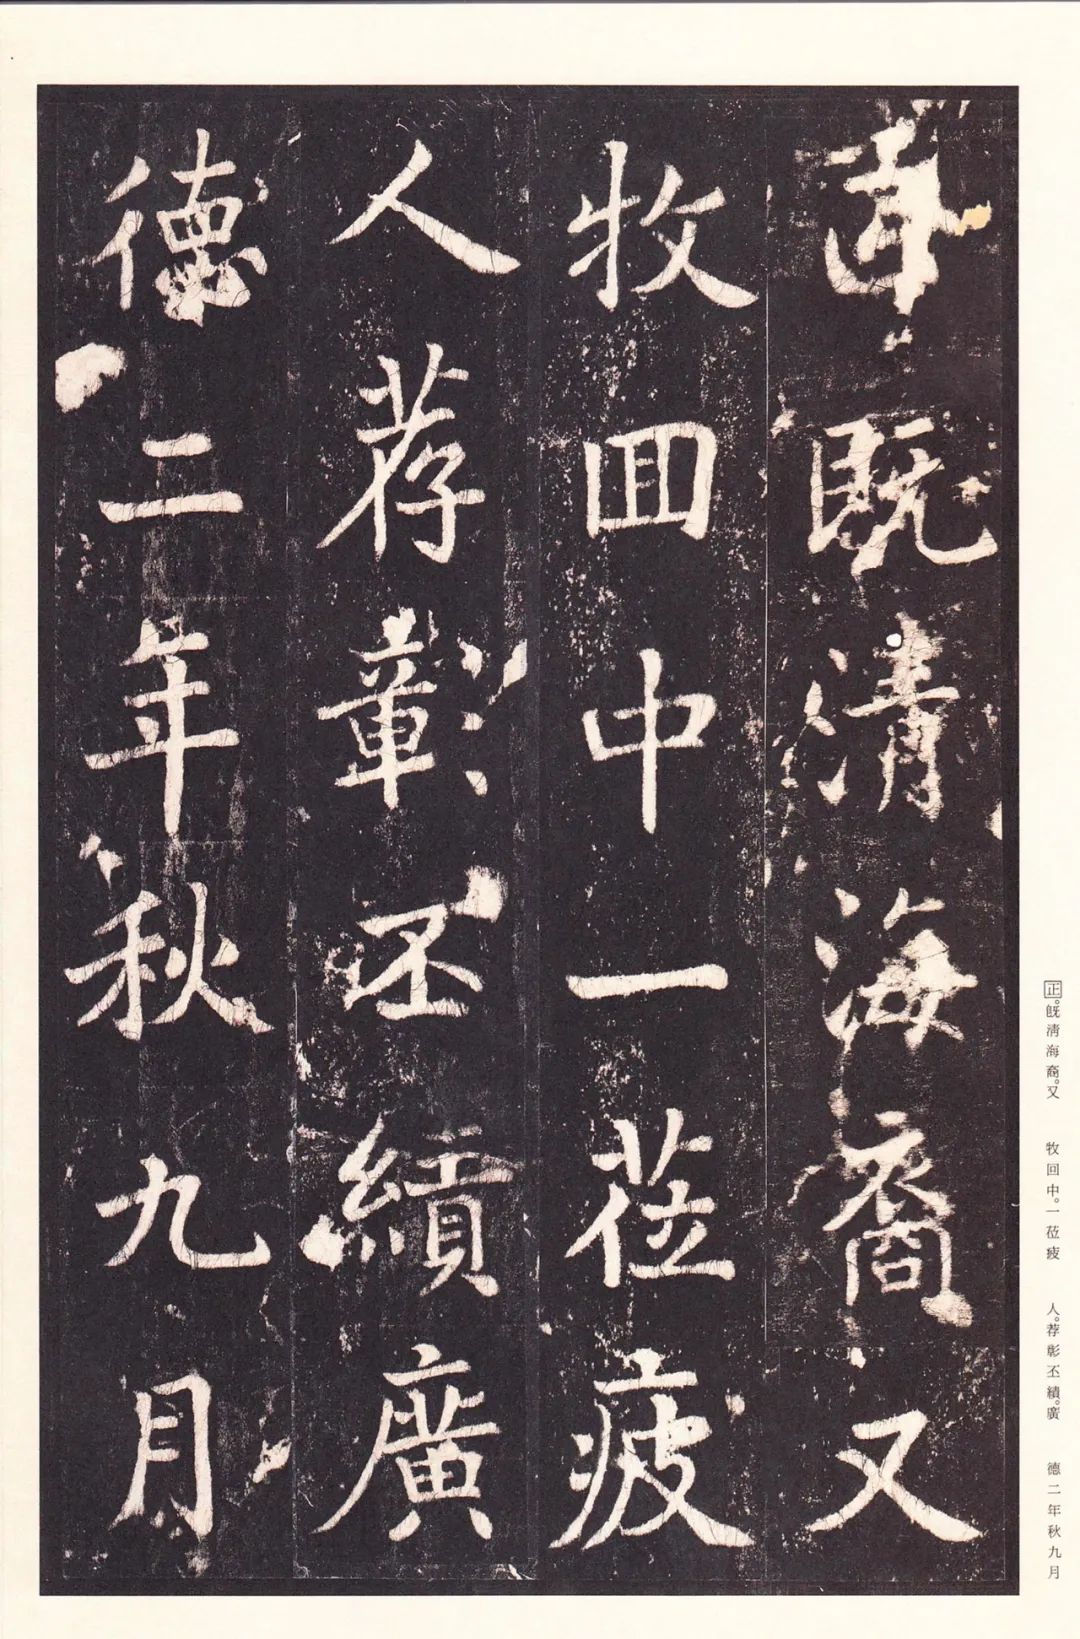 既清海裔又
牧囬中一莅疲
人荐彰丕績廣
德二年秋九月
正。既清海裔。又　牧回中。一莅疲　人。荐彰丕績。廣　德二年秋九月